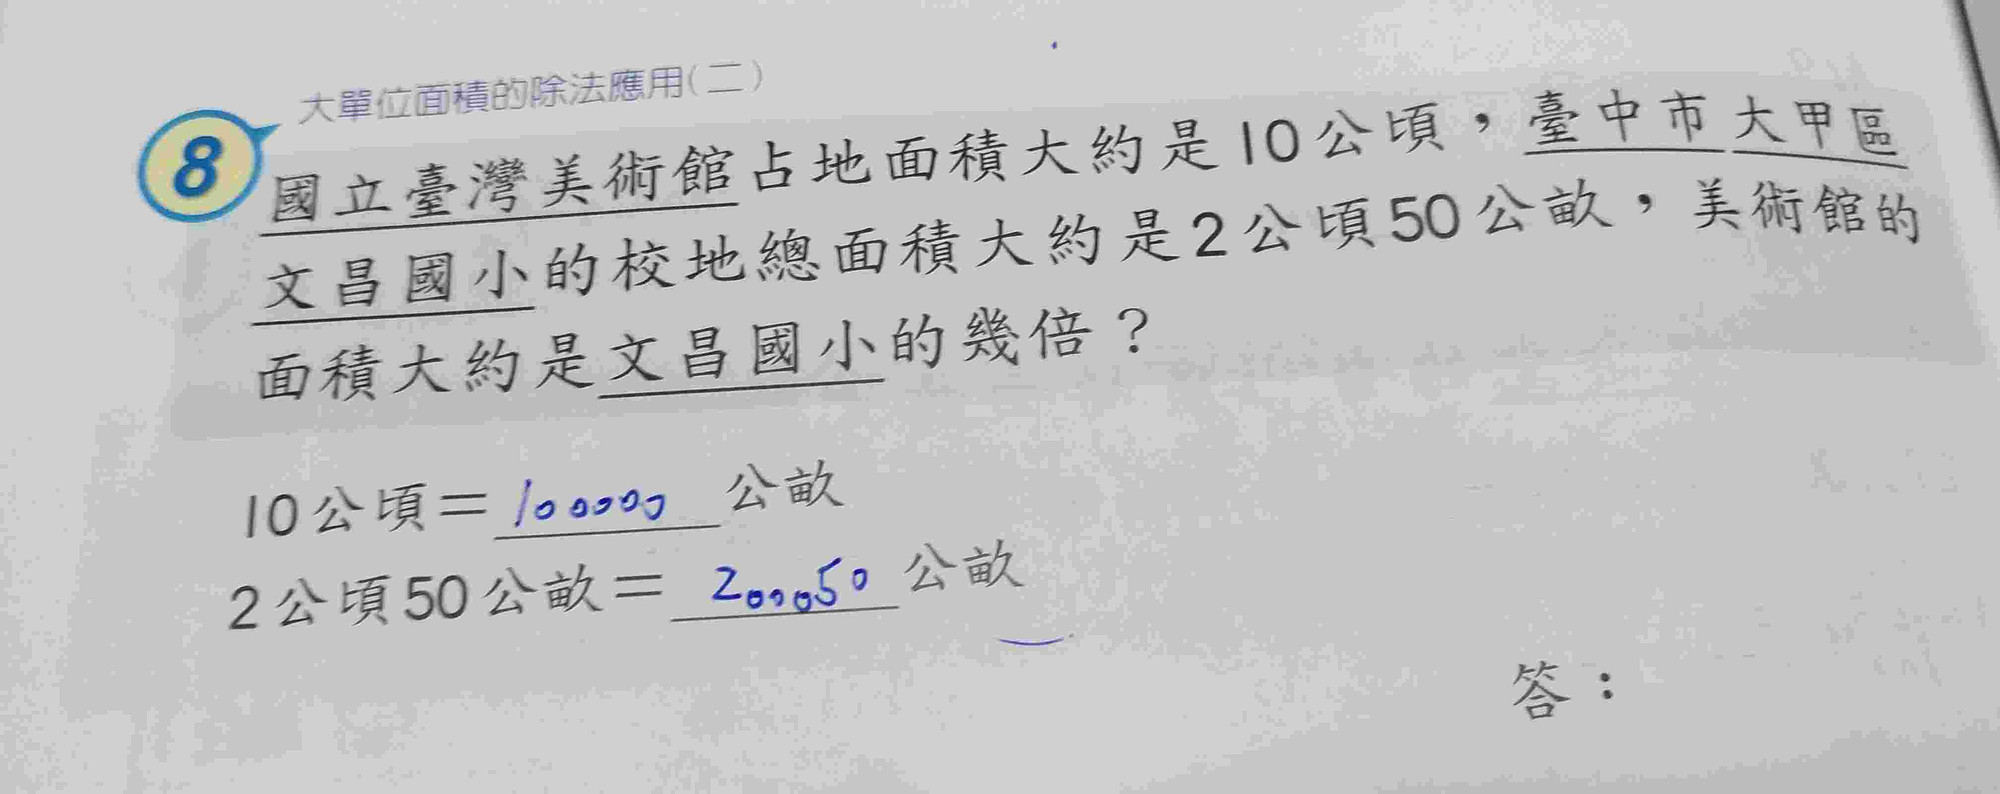 大單位面積的除法應用(二)
8
國立臺灣美術館占地面積大約是10公頃，臺中市大甲區
文昌國小的校地總面積大約是2公頃50公畝，美術館的
面積大約是文昌國小的幾倍？
10公頃＝100000 公畝
2公頃50公畝＝200050 公畝
答：